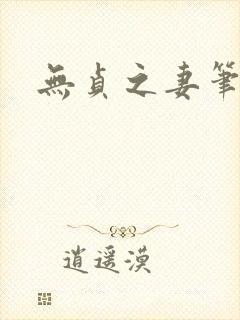 無貞之妻筆
逍遥漠